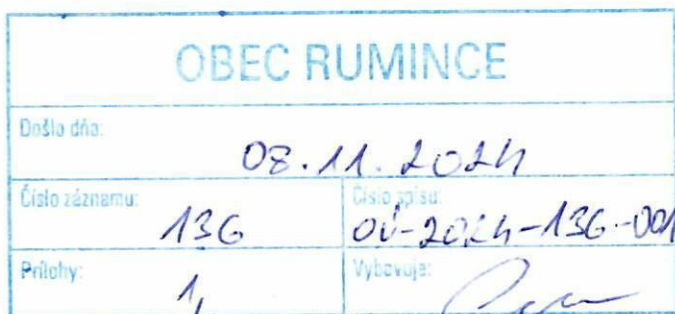 OBEC RUMINCE
Došlo dňa:
08.11.2024
Číslo záznamu:
136
Číslo spisu:
OÚ-2024-136-001
Prílohy:
1,
Vybavuje: